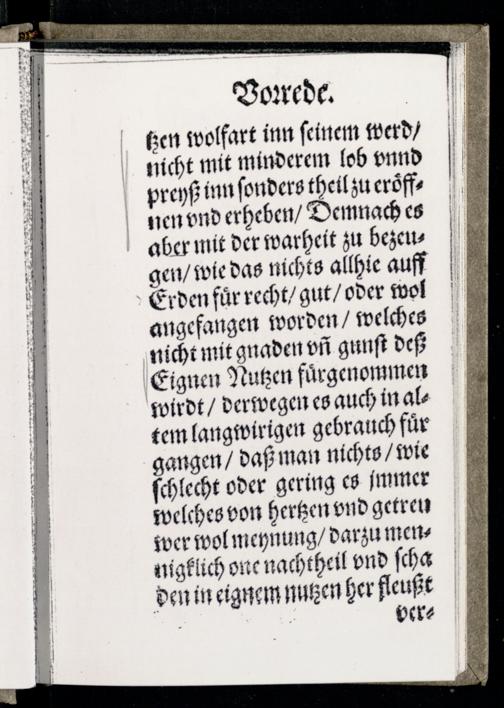 Vorrede.
tzen wolfart inn seinem werd/
nicht mit minderem lob vnnd
preyß inn sonders theil zu eröff-
nen vnd erheben/ Demnach es
aber mit der warheit zu bezeu-
gen/ wie das nichts allhie auff
Erden für recht/ gut/ oder wol
angefangen worden/ welches
nicht mit gnaden vñ gunst deß
Eignen Nutzen fürgenommen
wirdt/ derwegen es auch in al-
tem langwirigen gebrauch für
gangen/ daß man nichts/ wie
schlecht oder gering es jmmer
welches von hertzen vnd getreu
wer wol meynung/ darzu men-
nigklich one nachtheil vnd scha
den in eignem nutzen her fleußt
ver-